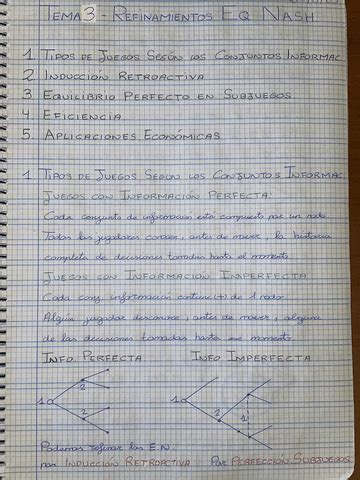 TEMA 3 - REFINAMIENTOS EQ NASH
1 TIPOS DE JUEGOS SEGÚN LOS CONJUNTOS INFORMAC.
2 INDUCCIÓN RETROACTIVA
3 EQUILIBRIO PERFECTO EN SUBJUEGOS
4 EFICIENCIA
5 APLICACIONES ECONÓMICAS
1 TIPOS DE JUEGOS SEGÚN LOS CONJUNTOS INFORMAC.
JUEGOS CON INFORMACIÓN PERFECTA
Cada conjunto de información está compuesto por un nodo
Todos los jugadores conocen, antes de mover, la historia
completa de decisiones tomadas hasta el momento.
JUEGOS CON INFORMACIÓN IMPERFECTA
Cada conj. información contiene (+) de 1 nodo.
Algún jugador desconoce, antes de mover, alguna
de las decisiones tomadas hasta ese momento.
INFO. PERFECTA INFO IMPERFECTA
1 2 2 1 2 1
Podemos refinar los E.N.
por INDUCCIÓN RETROACTIVA Por PERFECCIÓN SUBJUEGOS